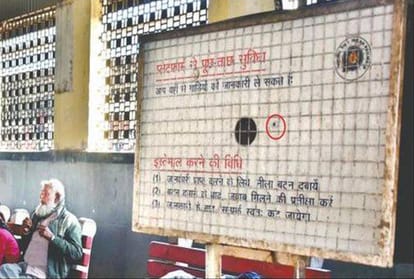 प्लेटफार्म से पूछ-ताछ सुविधा
आप यहाँ से गाड़ियों की जानकारी ले सकते है
इस्तेमाल करने की विधि
(1) जानकारी प्राप्त करने के लिये नीला बटन दबायें
(2) बटन दबाने के बाद, जवाब मिलने की प्रतीक्षा करें
(3) जानकारी के बाद सम्पर्क स्वतः कट जायेगा